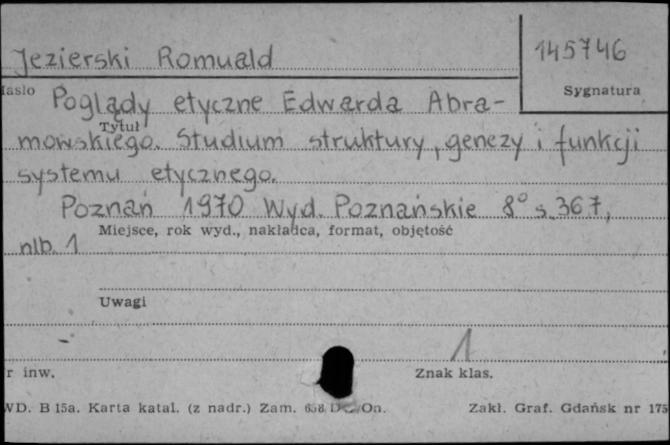 Jezierski Romuald
145746
Sygnatura
Hasło
Poglądy etyczne Edwarda Abra-
Tytuł
mowskiego. Studium struktury, genezy i funkcji
systemu etycznego.
Poznań 1970 Wyd. Poznańskie 8° s. 367,
Miejsce, rok wyd., nakładca, format, objętość
nlb. 1
Uwagi
1
r inw.
Znak klas.
WD. B 15a. Karta katal. (z nadr.) Zam. Zakł. Graf. Gdańsk nr 175